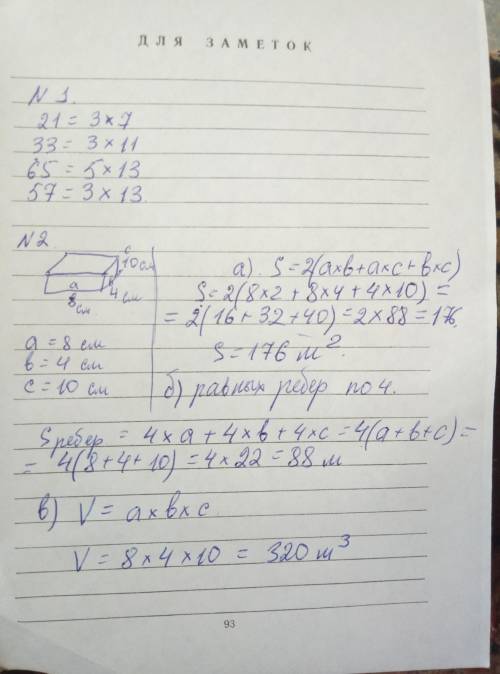 ДЛЯ ЗАМЕТОК
N 1.
21 = 3 × 7
33 = 3 × 11
65 = 5 × 13
57 = 3 × 13
N 2
c
10 см
a
в
4 см
8 см
a = 8 см
в = 4 см
c = 10 см
а). S = 2(a×в+a×c+в×c)
S = 2(8×2 + 8×4 + 4×10) =
= 2(16 + 32 + 40) = 2 × 88 = 176.
S = 176 м².
б) равных ребер по 4.
S ребер = 4×a + 4×в + 4×c = 4(a+в+c) =
= 4(8+4+10) = 4×22 = 88 м
в) V = a×в×c
V = 8 × 4 × 10 = 320 м³
93